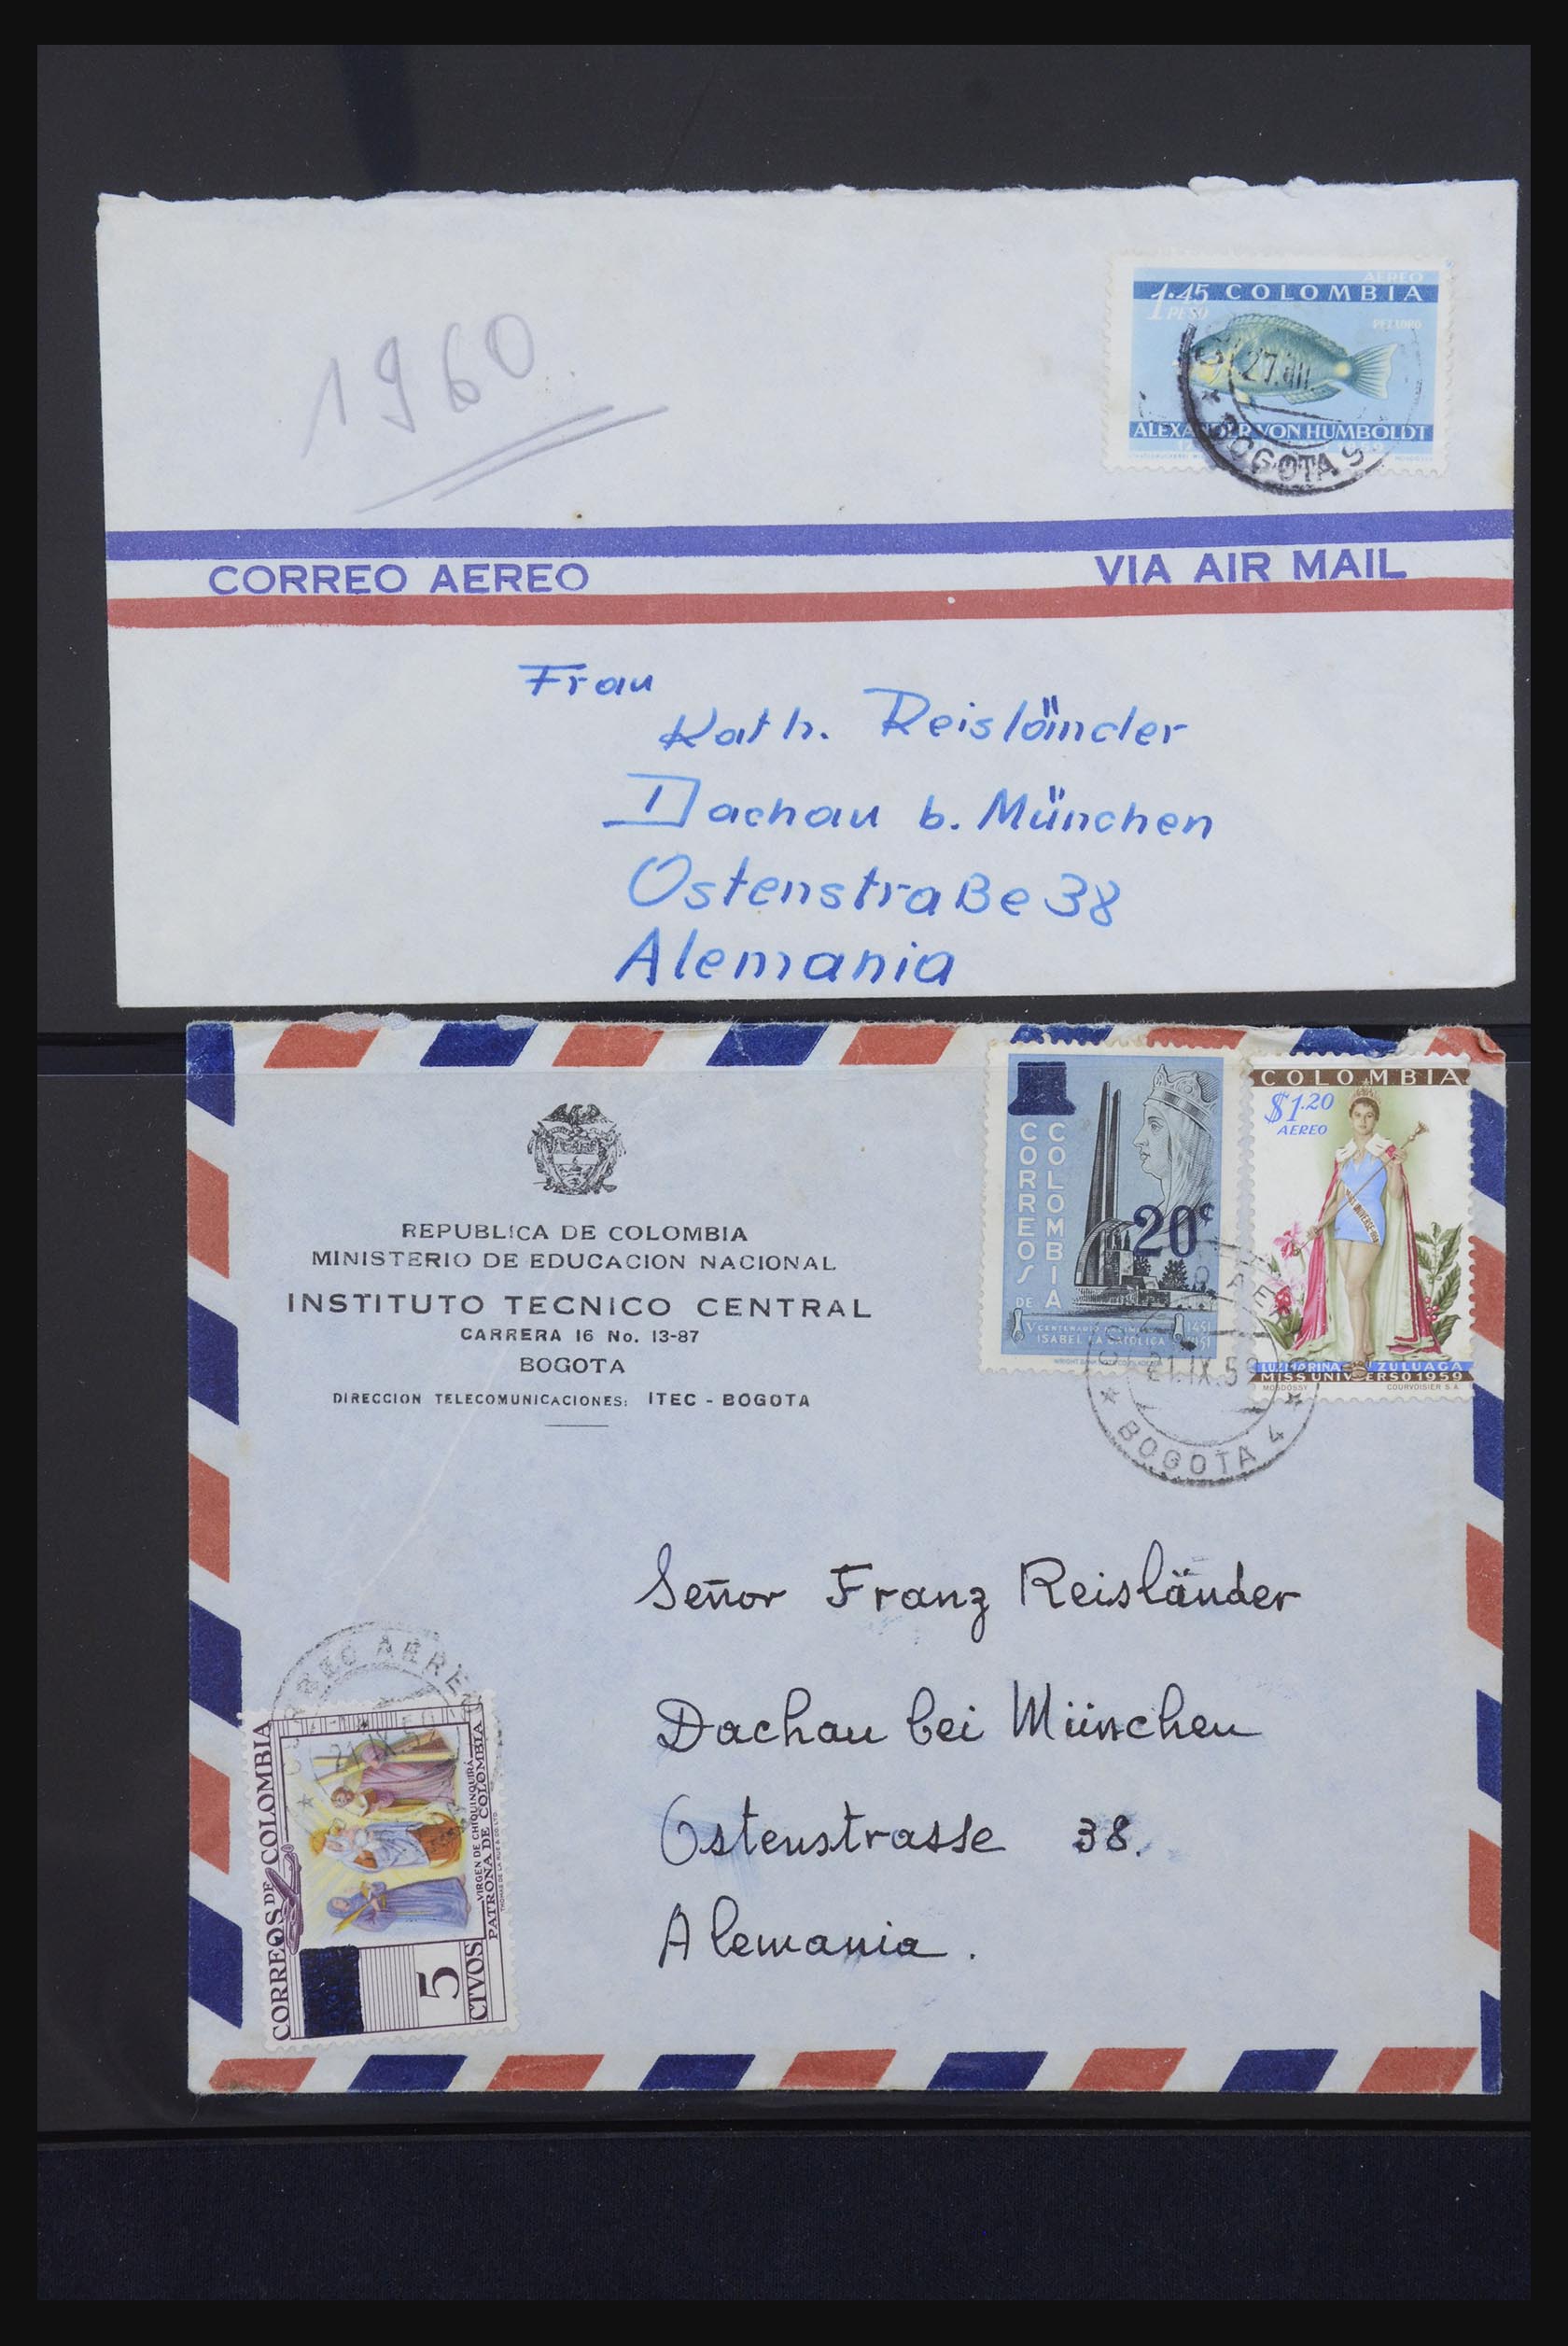 1960
AEREO
1.45 COLOMBIA
PESO
PEZ LORO
27.VII.
ALEXANDER VON HUMBOLDT
BOGOTA
CORREO AEREO
VIA AIR MAIL
Frau
Kath. Reisländer
Dachau b. München
Ostenstraße 38
Alemania
REPUBLICA DE COLOMBIA
MINISTERIO DE EDUCACION NACIONAL
INSTITUTO TECNICO CENTRAL
CARRERA 16 No. 13-87
BOGOTA
DIRECCION TELECOMUNICACIONES: ITEC - BOGOTA
CORREOS DE COLOMBIA
20¢
V CENTENARIO
ISABEL LA CATOLICA
1451
1951
COLOMBIA
$1.20
AEREO
LUZ MARINA ZULUAGA
MISS UNIVERSO 1959
MOSDOSSY
COURVOISIER S.A.
21.IX.59
BOGOTA 4
Señor Franz Reisländer
Dachau bei München
Ostenstrasse 38.
Alemania.
CORREO AEREO
21 IX 59
CORREOS DE COLOMBIA
5
CTVOS
VIRGEN DE CHIQUINQUIRÁ
PATRONA DE COLOMBIA
THOMAS DE LA RUE & CO. LTD.